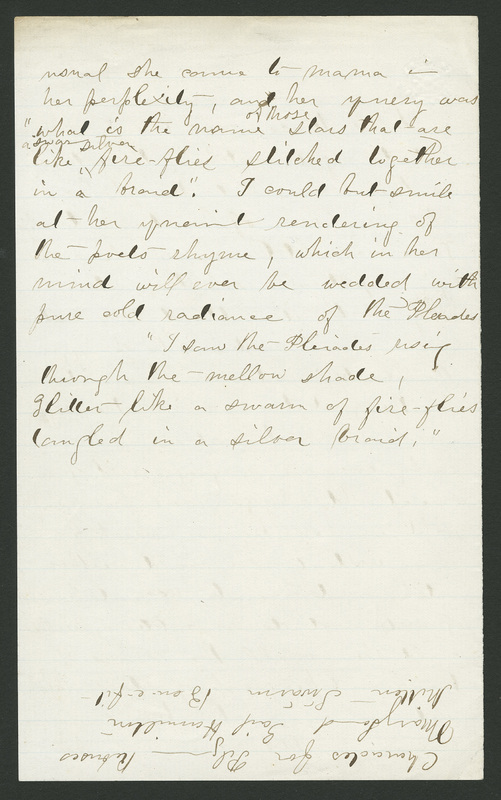 usual she came to mama in
her perplexity, and her query was
of those
"what is the name stars that are
a swar silver
like fire-flies stitched together
in a braid". I could but smile
at her quaint rendering of
the poets rhyme, which in her
mind will ever be wedded with
pure cold radiance of the Pleades
"I saw the Pleiades rising
through the mellow shade,
Glitter like a swarm of fire-flies
tangled in a silver braid."
for
Maryland Gail Hamilton
Mitten Swarm